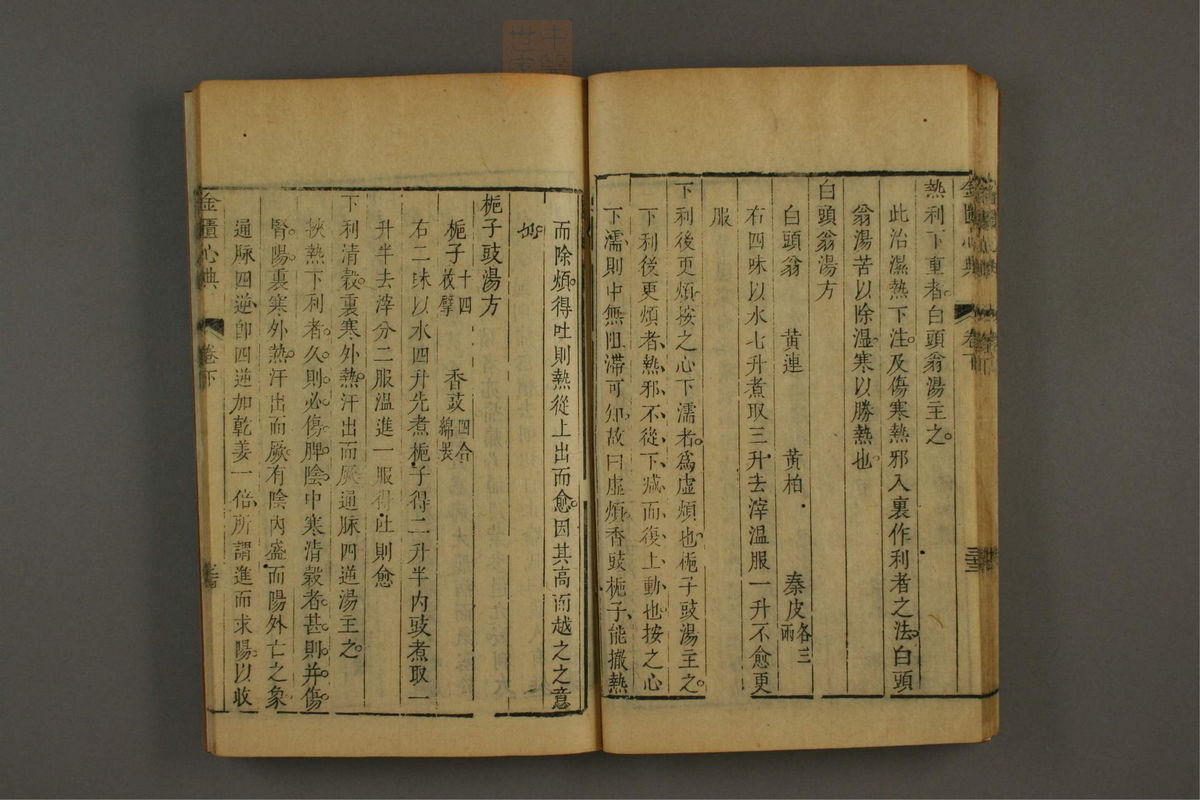 金匱心典
卷下
熱利下重者白頭翁湯主之
此治濕熱下注及傷寒熱邪入裏作利者之法白頭
翁湯苦以除溫寒以勝熱也
白頭翁湯方
白頭翁 黃連 黃柏 秦皮各三兩
右四味以水七升煮取三升去滓溫服一升不愈更
服
下利後更煩按之心下濡者為虛煩也梔子豉湯主之
下利後更煩者熱邪不從下減而復上動也按之心
下濡則中無阻滯可知故曰虛煩香豉梔子能撤熱
而除煩得吐則熱從上出而愈因其高而越之之意
也
梔子豉湯方
梔子十四枚擘 香豉四合綿裹
右二味以水四升先煮梔子得二升半內豉煮取一
升半去滓分二服溫進一服得吐則愈
下利清穀裏寒外熱汗出而厥通脉四逆湯主之
挾熱下利者久則必傷脾陰中寒清穀者甚則并傷
腎陽裏寒外熱汗出而厥有陰內盛而陽外亡之象
通脉四逆即四逆加乾姜一倍所謂進而求陽以收
金匱心典
卷下